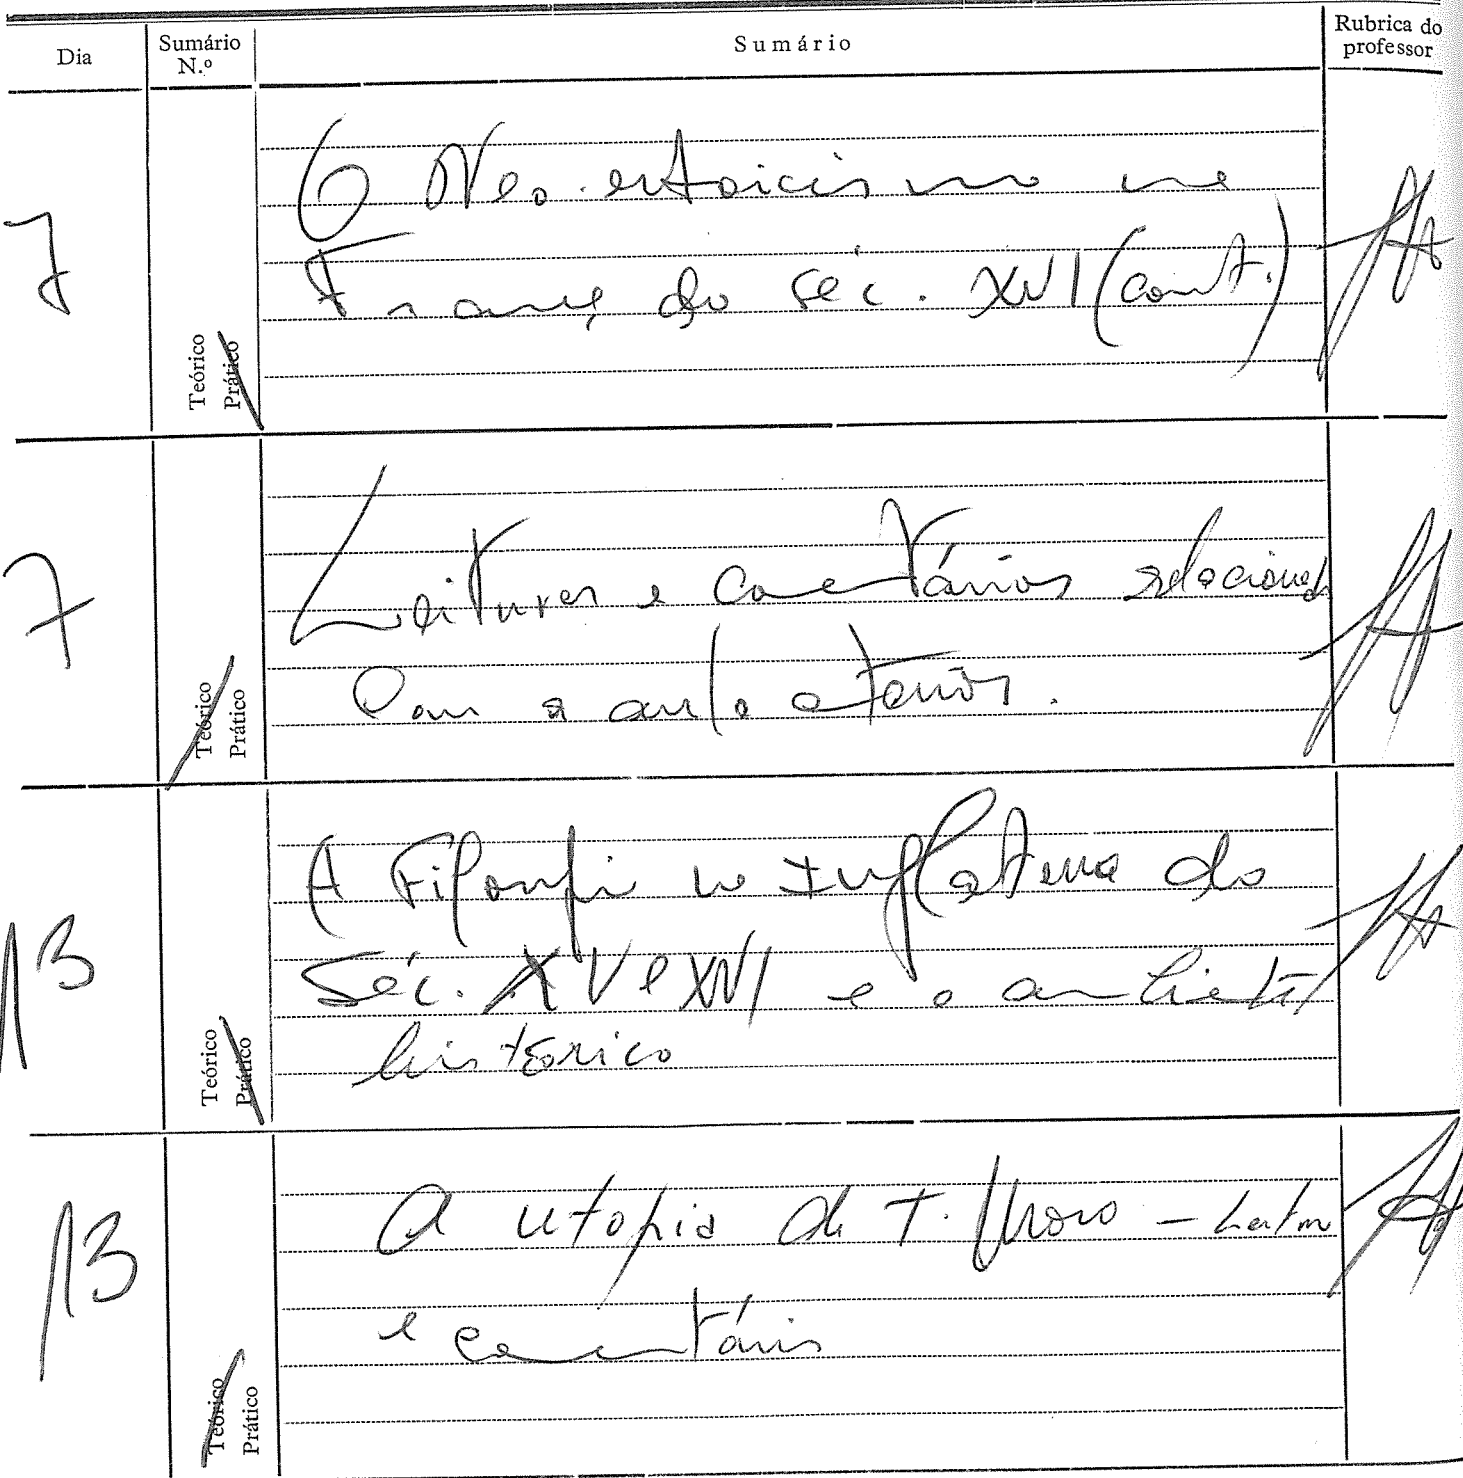 Dia
Sumário N.º
Sumário
Rubrica do professor
7
Teórico
Prático
O Neo-estoicismo na
França do séc. XVI (cont.)
7
Teórico
Prático
Leituras e comentários relacionad
com a aula anterior.
13
Teórico
Prático
A Filosofia na Inglaterra do
Séc. XV e XVI e o ambiente
histórico
13
Teórico
Prático
A utopia de T. Moro - Leitura
e comentário